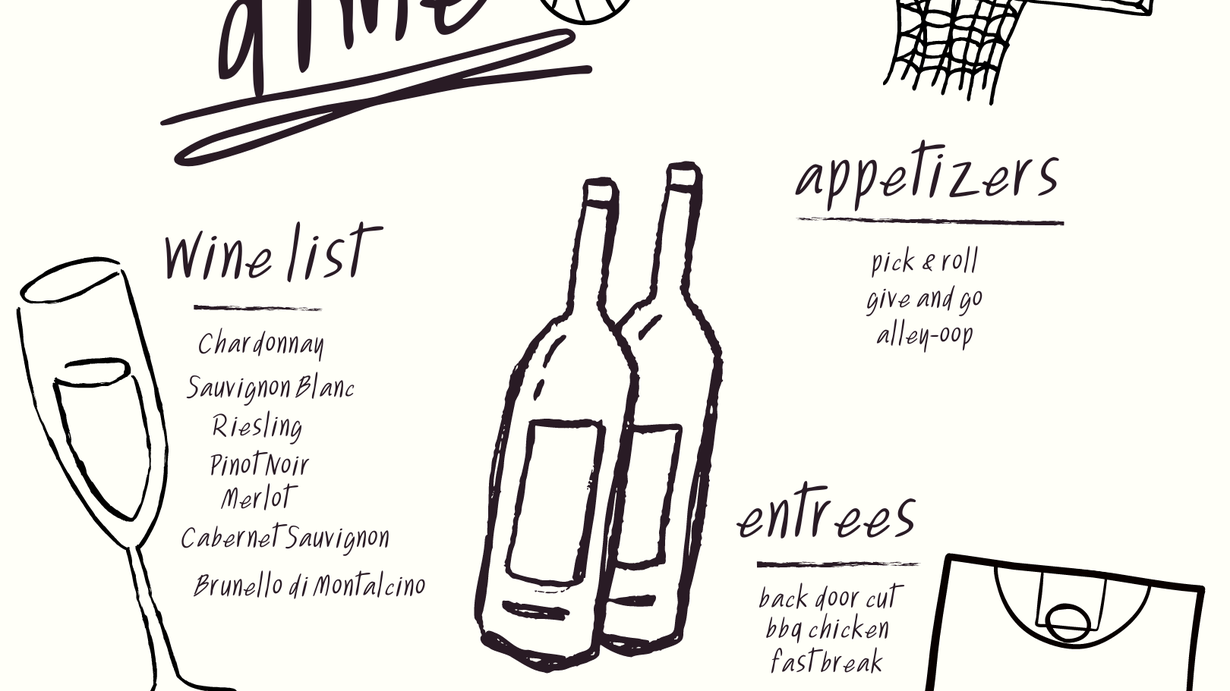 wine list
Chardonnay
Sauvignon Blanc
Riesling
Pinot Noir
Merlot
Cabernet Sauvignon
Brunello di Montalcino
appetizers
pick & roll
give and go
alley-oop
entrees
back door cut
bbq chicken
fastbreak